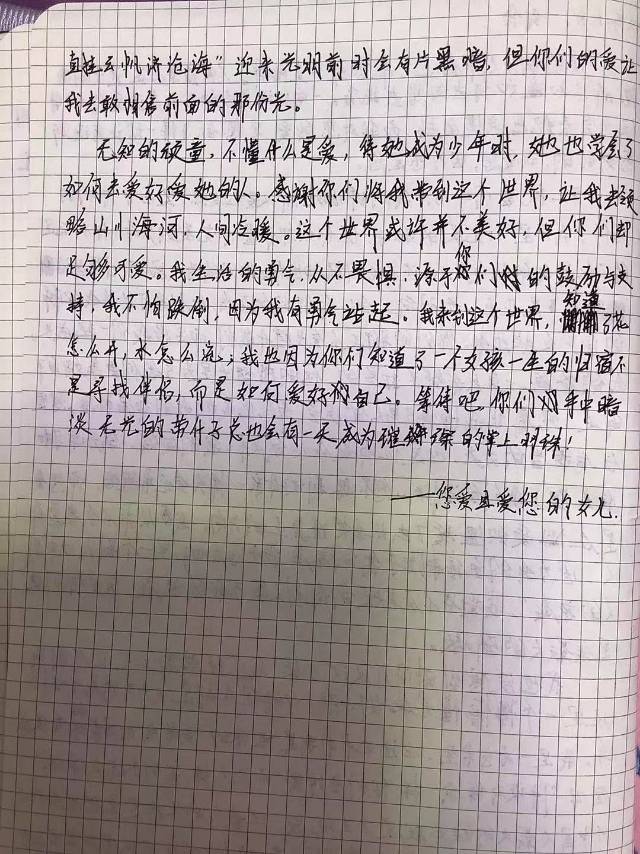 直挂云帆济沧海"迎来光明前时会有片黑暗,但你们的爱让
我去敢相信前面的那份光。
无知的顽童,不懂什么是爱,待她成为少年时,她也学会了
如何去爱好爱她的人。感谢你们将我带到这个世界,让我去领
略山川海河,人间冷暖。这个世界或许并不美好,但你们却
足够可爱。我生活的勇气,从不畏惧,源于你们的鼓励与支
持,我不怕跌倒,因为我有勇气站起。我来到这个世界,知道了花
怎么开,水怎么流;我也因为你们知道了一个女孩一生的归宿不
是寻找伴侣,而是如何爱好自己。等待吧,你们手中暗
淡无光的苗什子总也会有一天成为璀璨的掌上明珠!
——您爱且爱您的女儿.